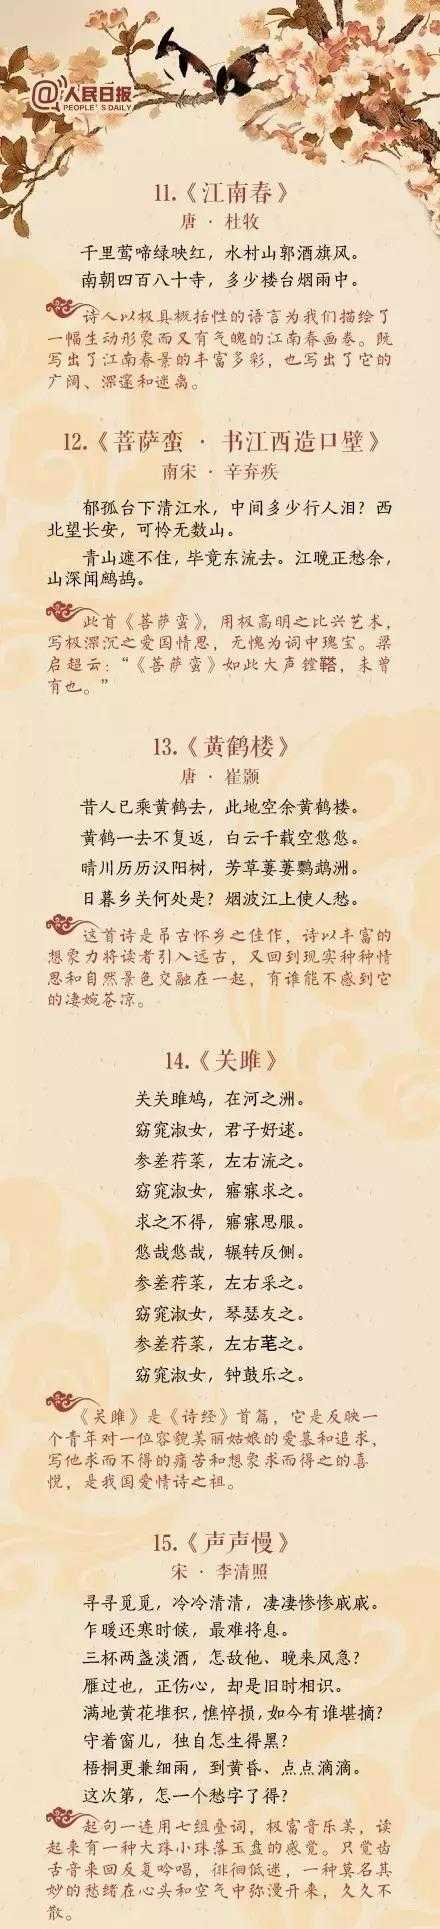 @人民日报
PEOPLE'S DAILY
11.《江南春》
唐 · 杜牧
千里莺啼绿映红，水村山郭酒旗风。
南朝四百八十寺，多少楼台烟雨中。
诗人以极具概括性的语言为我们描绘了
一幅生动形象而又有气魄的江南春画卷。既
写出了江南春景的丰富多彩，也写出了它的
广阔、深邃和迷离。
12.《菩萨蛮 · 书江西造口壁》
南宋 · 辛弃疾
郁孤台下清江水，中间多少行人泪？西
北望长安，可怜无数山。
青山遮不住，毕竟东流去。江晚正愁余，
山深闻鹧鸪。
此首《菩萨蛮》，用极高明之比兴艺术，
写极深沉之爱国情思，无愧为词中瑰宝。梁
启超云：“《菩萨蛮》如此大声镗鞳，未曾
有也。”
13.《黄鹤楼》
唐 · 崔颢
昔人已乘黄鹤去，此地空余黄鹤楼。
黄鹤一去不复返，白云千载空悠悠。
晴川历历汉阳树，芳草萋萋鹦鹉洲。
日暮乡关何处是？烟波江上使人愁。
这首诗是吊古怀乡之佳作，诗以丰富的
想象力将读者引入远古，又回到现实种种情
思和自然景色交融在一起，有谁能不感到它
的凄婉苍凉。
14.《关雎》
关关雎鸠，在河之洲。
窈窕淑女，君子好逑。
参差荇菜，左右流之。
窈窕淑女，寤寐求之。
求之不得，寤寐思服。
悠哉悠哉，辗转反侧。
参差荇菜，左右采之。
窈窕淑女，琴瑟友之。
参差荇菜，左右芼之。
窈窕淑女，钟鼓乐之。
《关雎》是《诗经》首篇，它是反映一
个青年对一位容貌美丽姑娘的爱慕和追求，
写他求而不得的痛苦和想象求而得之的喜
悦，是我国爱情诗之祖。
15.《声声慢》
宋 · 李清照
寻寻觅觅，冷冷清清，凄凄惨惨戚戚。
乍暖还寒时候，最难将息。
三杯两盏淡酒，怎敌他、晚来风急？
雁过也，正伤心，却是旧时相识。
满地黄花堆积，憔悴损，如今有谁堪摘？
守着窗儿，独自怎生得黑？
梧桐更兼细雨，到黄昏、点点滴滴。
这次第，怎一个愁字了得？
起句一连用七组叠词，极富音乐美，读
起来有一种大珠小珠落玉盘的感觉。只觉齿
舌音来回反复吟唱，徘徊低迷，一种莫名其
妙的愁绪在心头和空气中弥漫开来，久久不
散。